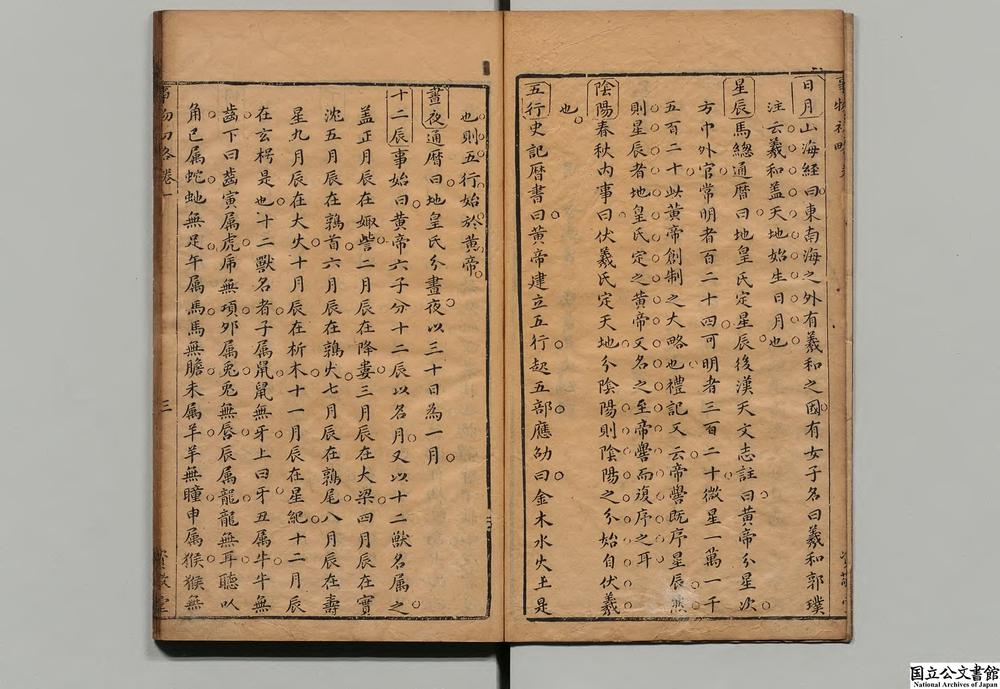 日月山海経曰東南海之外有羲和之國有女子名曰羲和郭璞
注云羲和盖天地始生日月也
星辰馬緫通曆曰地皇氏定星辰後漢天文志註曰黄帝分星次
方中外官常明者百二十四可明者三百二十微星一萬一千
五百二十此黄帝創制之大略也禮記又云帝嚳既序星辰然
則星辰者地皇氏定之黄帝又名之至帝嚳而復序之耳
陰陽春秋内事曰伏羲氏定天地分陰陽則陰陽之分始自伏羲
也
五行史記曆書曰黄帝建立五行起五部應劭曰金木水火土是
也則五行始於黄帝
晝夜通曆曰地皇氏分晝夜以三十日為一月
十二辰事始曰黄帝六子分十二辰以名月又以十二獸名属之
盖正月辰在娵訾二月辰在降婁三月辰在大梁四月辰在實
沈五月辰在鶉首六月辰在鶉火七月辰在鶉尾八月辰在壽
星九月辰在大火十月辰在析木十一月辰在星紀十二月辰
在玄枵是也十二獸名者子属鼠鼠無牙上曰牙丑属牛牛無
齒下曰齒寅属虎虎無項卯属兎兎無唇辰属龍龍無耳聽以
角巳属蛇虵無足午属馬馬無膽未属羊羊無瞳申属猴猴無
三
国立公文書館
National Archives of Japan